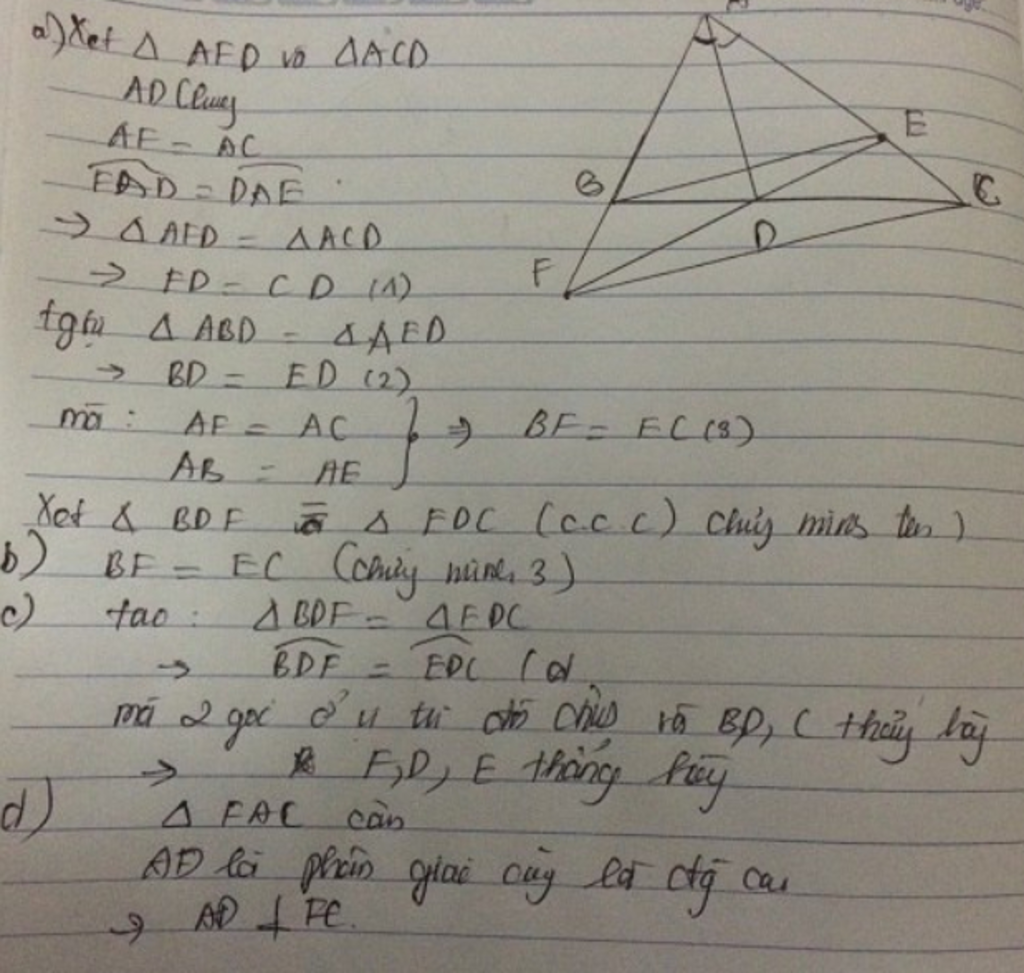 a) Xét Δ AFD và ΔACD
AD chung
AF = AC
FAD = DAE
→ Δ AFD = ΔACD
→ FD = CD (1)
tgtự Δ ABD = ΔAED
→ BD = ED (2)
mà : AF = AC
AB = AE
⇒ BF = EC (3)
Xét Δ BDF = Δ EDC (c.c.c) chứng minh trên)
b) BF = EC (chứng minh 3)
c) ta có : ΔBDF = ΔEDC
→ BDF = EDC (
mà 2 góc ở vị trí đối đỉnh và BD, C thẳng hàng
→ F, D, E thẳng hàng
d) Δ FAC cân
AD là phân giác cũng là đg cao
→ AD ⊥ FC.
A
E
B
C
D
F